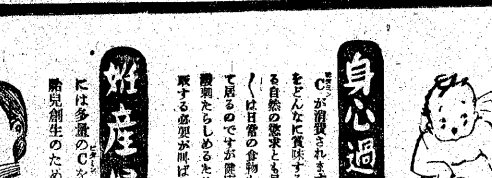 身心過
Cが消費されま
をどんなに賞味す
る自然の慾求とも
くは日常の食物
て居るのですが健
溌剌たらしめるた
取する必要が叫ば
姙産
には多量のCを
胎兒創生のため